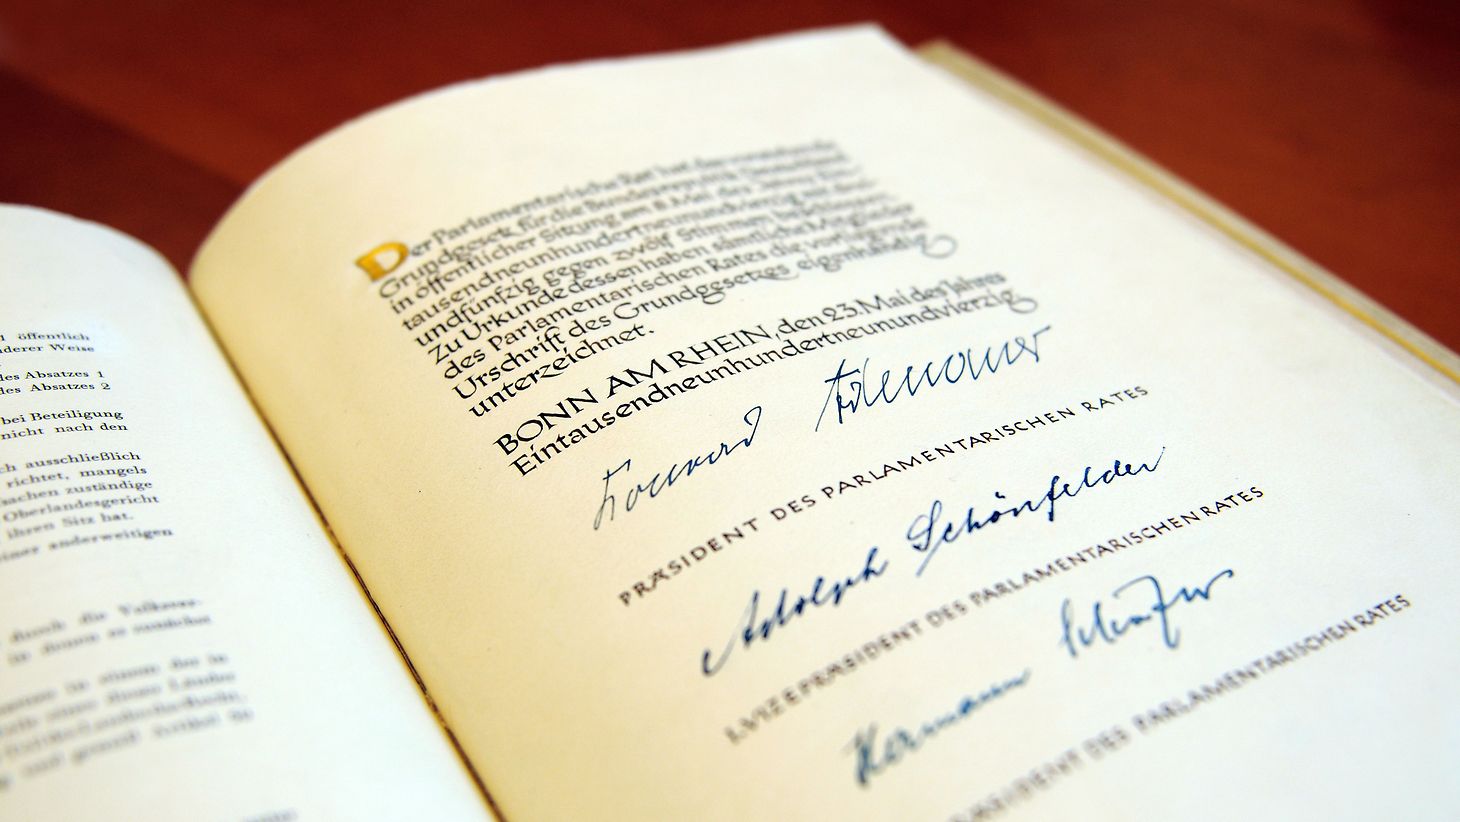 1 öffentlich
nderer Weise
des Absatzes 1
des Absatzes 2
bei Beteiligung
nicht nach den
ch ausschließlich
richtet, mangels
sachen zuständige
Oberlandesgericht
ihren Sitz hat.
einer anderweitigen
durch die
Der Parlamentarische Rat hat das vorstehende
Grundgesetz für die Bundesrepublik Deutschland
in öffentlicher Sitzung am 8. Mai des Jahres Ein-
tausendneunhundertneunundvierzig mit drei-
undfünfzig gegen zwölf Stimmen beschlossen.
Zu Urkunde dessen haben sämtliche Mitglieder
des Parlamentarischen Rates die vorliegende
Urschrift des Grundgesetzes eigenhändig
unterzeichnet.
BONN AM RHEIN, den 23. Mai des Jahres
Eintausendneunhundertneunundvierzig
Konrad Adenauer
PRÄSIDENT DES PARLAMENTARISCHEN RATES
Adolph Schönfelder
I. VIZEPRÄSIDENT DES PARLAMENTARISCHEN RATES
Hermann Schäfer
PRÄSIDENT DES PARLAMENTARISCHEN RATES